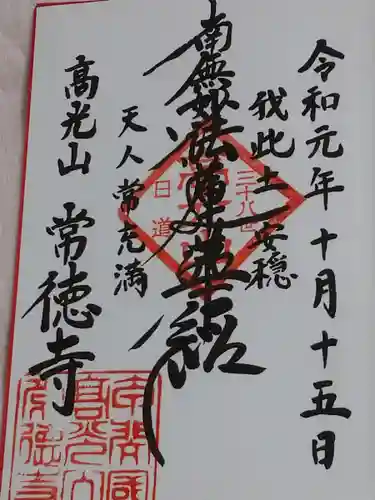 令和元年十月十五日
我此土安穏
南無妙法蓮華経
天人常充満
高光山 常徳寺
三十八世
日道